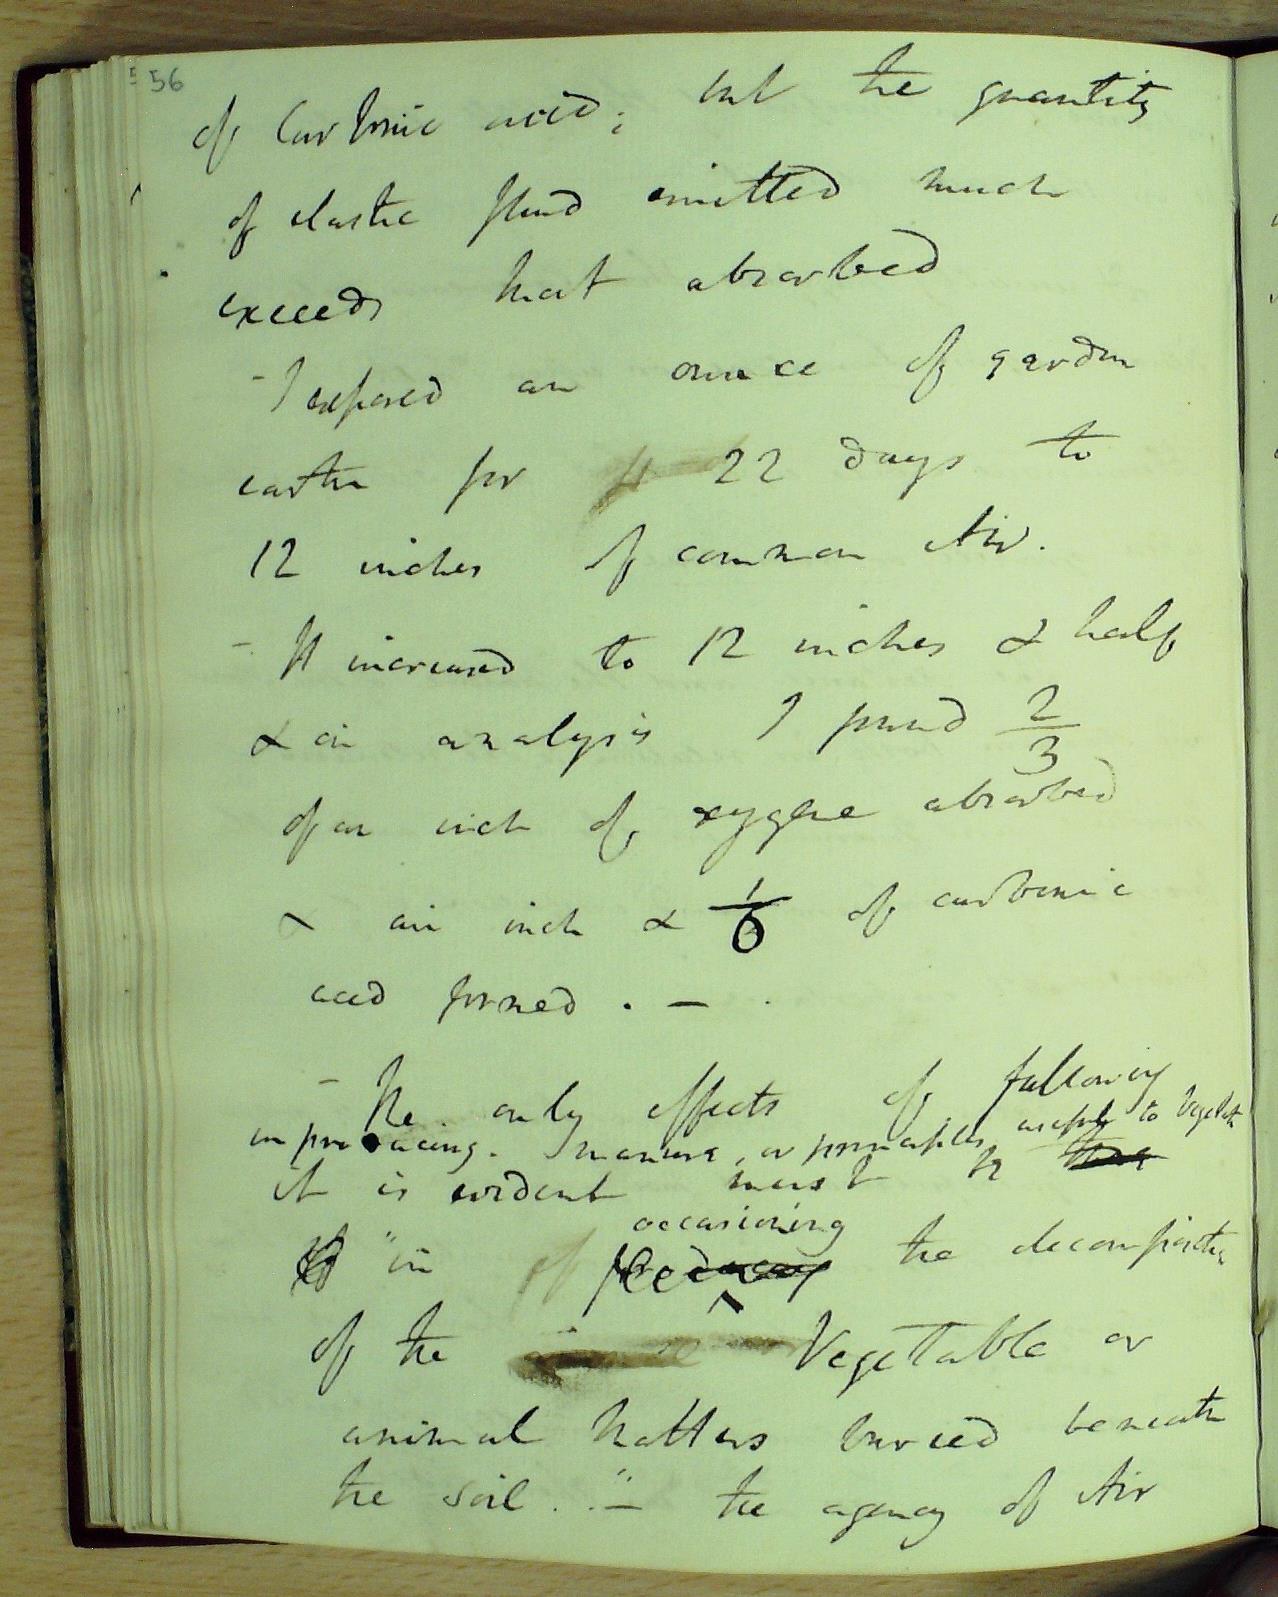 56
of Carbonic acid; but the quantity
of elastic fluid emitted much
exceeds that absorbed
- I exposed an ounce of garden
earth for 22 days to
12 inches of common Air.
- It increased to 12 inches & half
& on analysis I found 2/3
of an inch of oxygene absorbed
& an inch & 1/6 of carbonic
acid formed. -
- The only effects of fallowing
in producing. manure, or principles useful to Vegetab
it is evident must be
in occasioning the decomposition
of the Vegetable or
animal Matters buried beneath
the soil. - the agency of Air